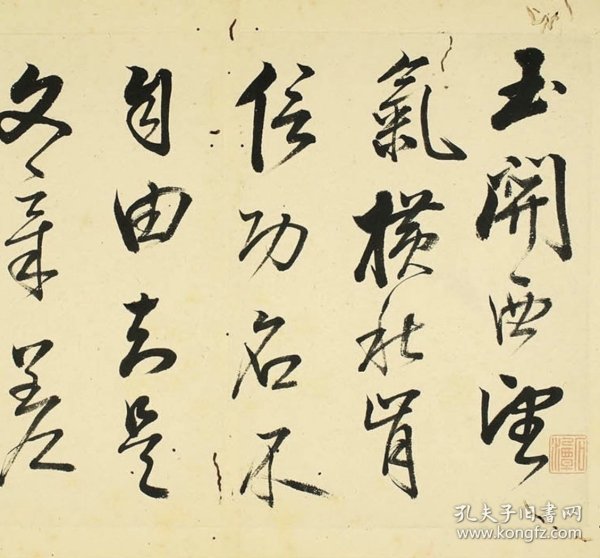 玉關西望
氣橫秋肯
信功名不
自由却是
文章差
孔夫子旧书网
www.kongfz.com